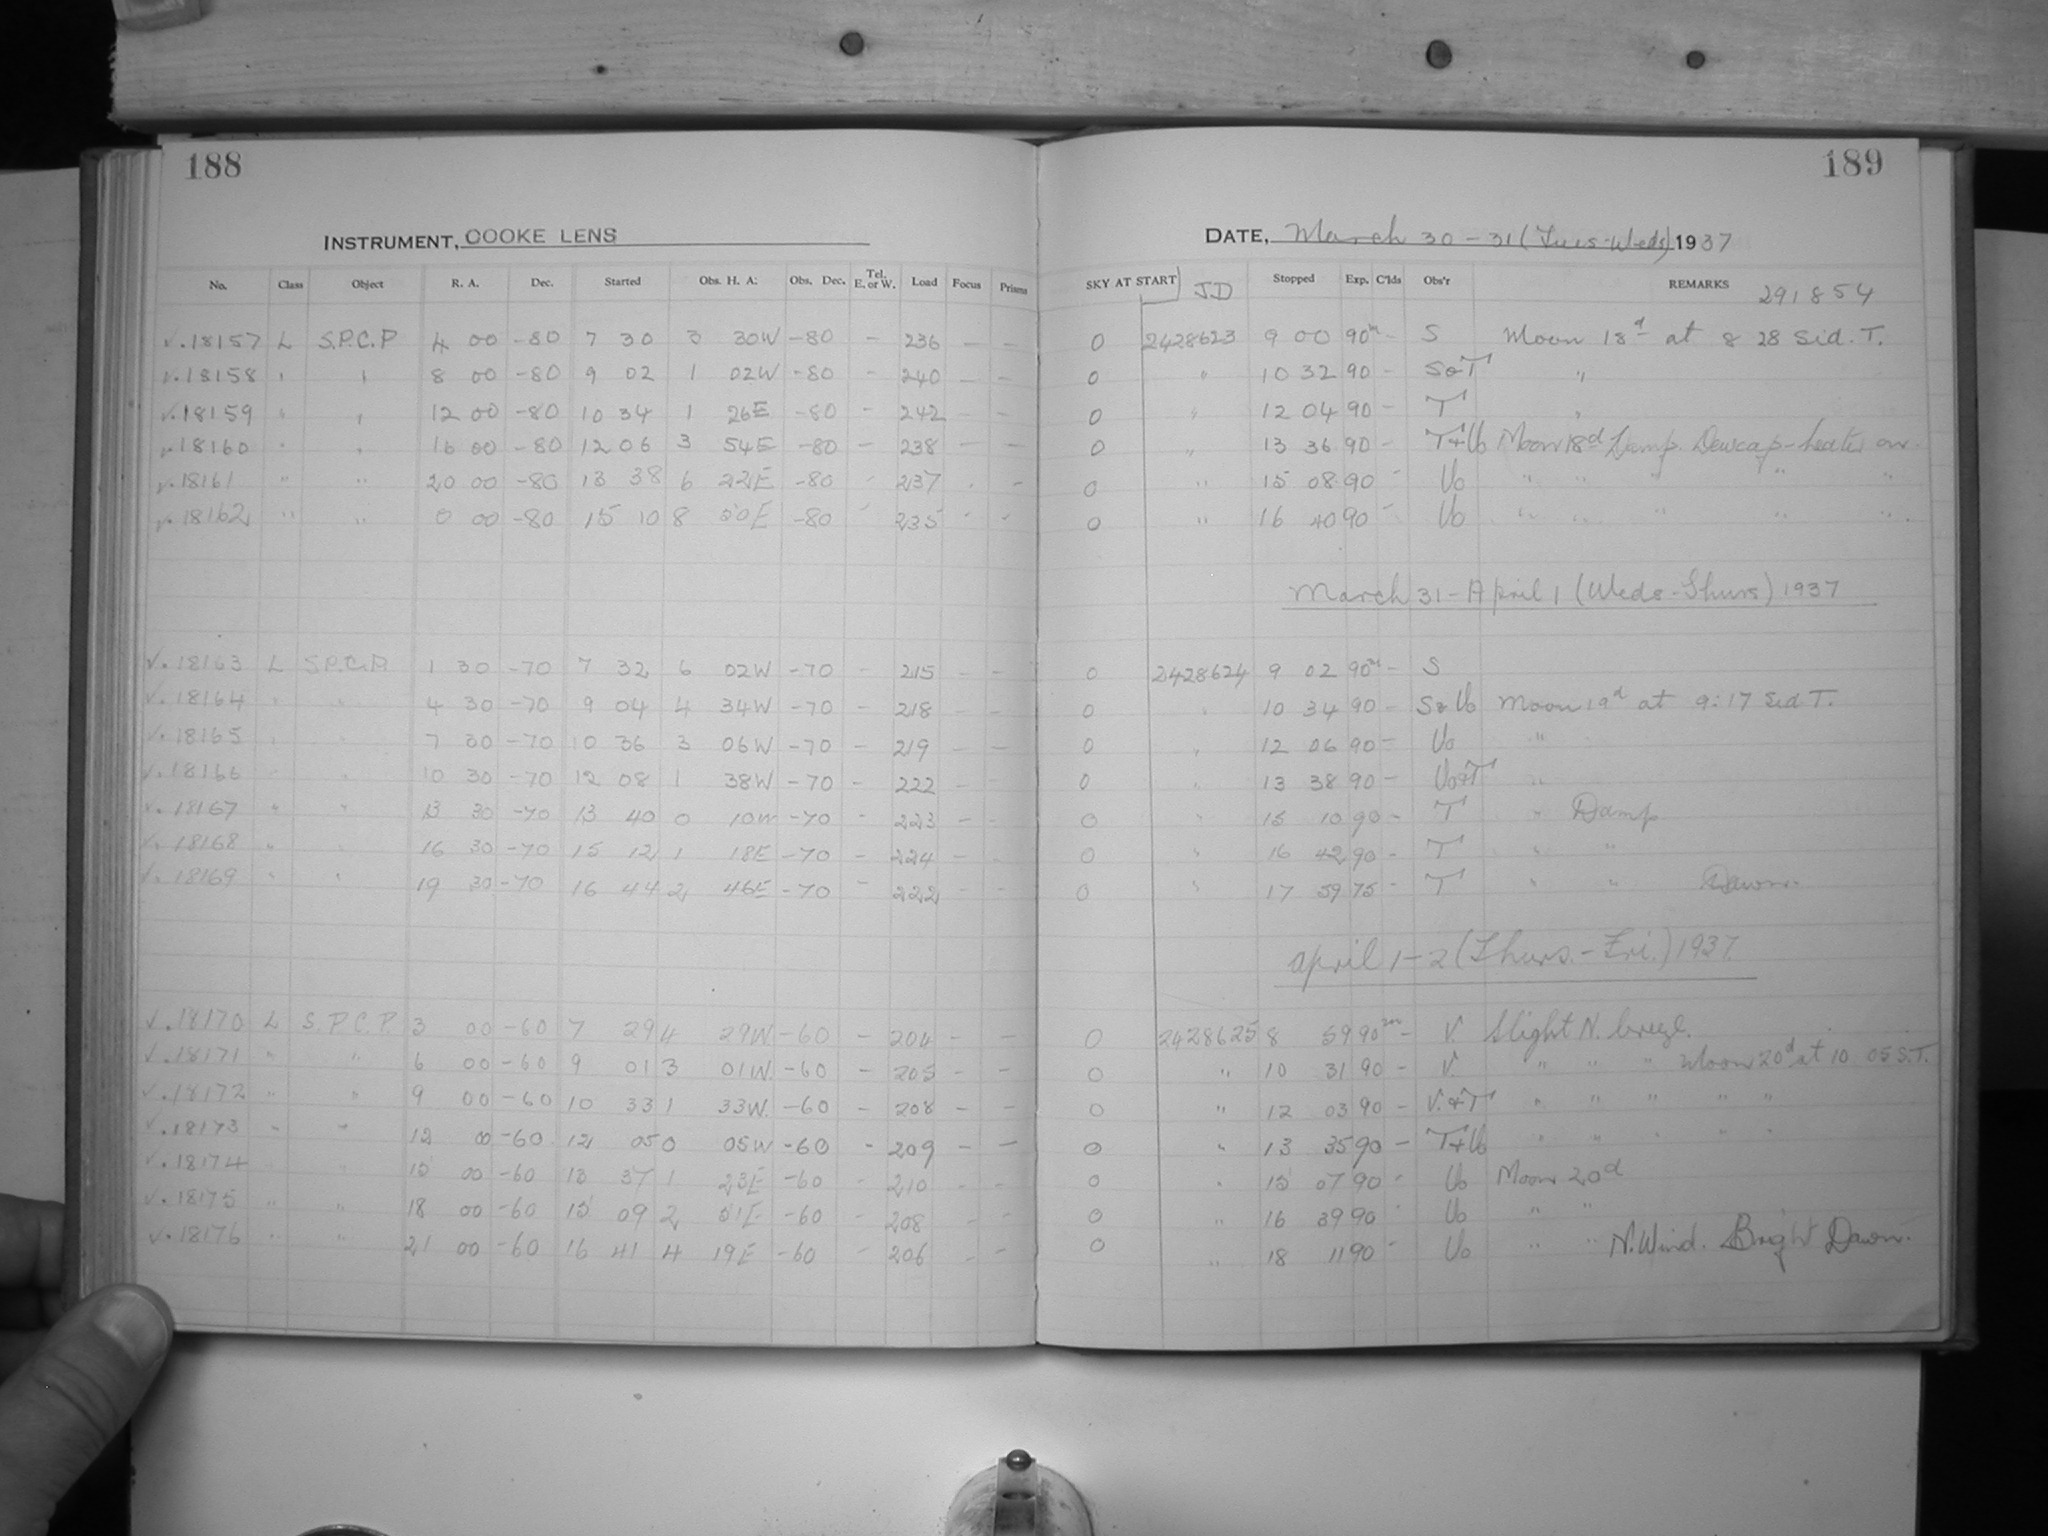 188
INSTRUMENT, COOKE LENS
No. Class Object R. A. Dec. Started Obs. H. A. Obs. Dec. Tel. E. or W. Load Focus Prisms
✓.18157 L S.P.C.P 4 00 -80 7 30 3 30W -80 - 236 - -
✓.18158 " " 8 00 -80 9 02 1 02W -80 - 240 - -
✓.18159 " " 12 00 -80 10 34 1 26E -80 - 242 - -
✓.18160 " " 16 00 -80 12 06 3 54E -80 - 238 - -
✓.18161 " " 20 00 -80 13 38 6 22E -80 - 237 - -
✓.18162 " " 0 00 -80 15 10 8 50E -80 - 235 - -
✓.18163 L S.P.C.P. 1 30 -70 7 32 6 02W -70 - 215 - -
✓.18164 " " 4 30 -70 9 04 4 34W -70 - 218 - -
✓.18165 " " 7 30 -70 10 36 3 06W -70 - 219 - -
✓.18166 " " 10 30 -70 12 08 1 38W -70 - 222 - -
✓.18167 " " 13 30 -70 13 40 0 10W -70 - 223 - -
✓.18168 " " 16 30 -70 15 12 1 18E -70 - 224 - -
✓.18169 " " 19 30 -70 16 44 2 46E -70 - 222 - -
✓.18170 L S.P.C.P. 3 00 -60 7 29 4 29W -60 - 204 - -
✓.18171 " " 6 00 -60 9 01 3 01W. -60 - 205 - -
✓.18172 " " 9 00 -60 10 33 1 33W. -60 - 208 - -
✓.18173 " " 12 00 -60 12 05 0 05W -60 - 209 - -
✓.18174 " " 15 00 -60 13 37 1 23E -60 - 210 - -
✓.18175 " " 18 00 -60 15 09 2 51E -60 - 208 - -
✓.18176 " " 21 00 -60 16 41 4 19E -60 - 206 - -
189
DATE, March 30-31 (Tues-Weds) 1937
SKY AT START JD Stopped Exp. C'lds Obs'r REMARKS 291854
0 2428623 9 00 90m - S Moon 18d at 8 28 Sid. T.
0 " 10 32 90 - S&T "
0 " 12 04 90 - T "
0 " 13 36 90 - T+Uo Moon 18d Damp. Dewcap-heater on.
0 " 15 08 90 - Uo " " " " "
0 " 16 40 90 - Uo " " " " "
March 31-April 1 (Weds-Thurs) 1937
0 2428624 9 02 90m - S
0 " 10 34 90 - S&Uo Moon 19d at 9:17 Sid T.
0 " 12 06 90 - Uo "
0 " 13 38 90 - Uo&T "
0 " 15 10 90 - T " Damp
0 " 16 42 90 - T " "
0 " 17 59 75 - T " " Dawn.
April 1-2 (Thurs.-Fri.) 1937
0 2428625 8 59 90m - V. Slight N. breeze.
0 " 10 31 90 - V. " " " Moon 20d at 10 05 S.T.
0 " 12 03 90 - V.&T " " " " "
0 " 13 35 90 - T+Uo " " " " "
0 " 15 07 90 - Uo Moon 20d
0 " 16 39 90 - Uo " "
0 " 18 11 90 - Uo " " N. Wind. Bright Dawn.